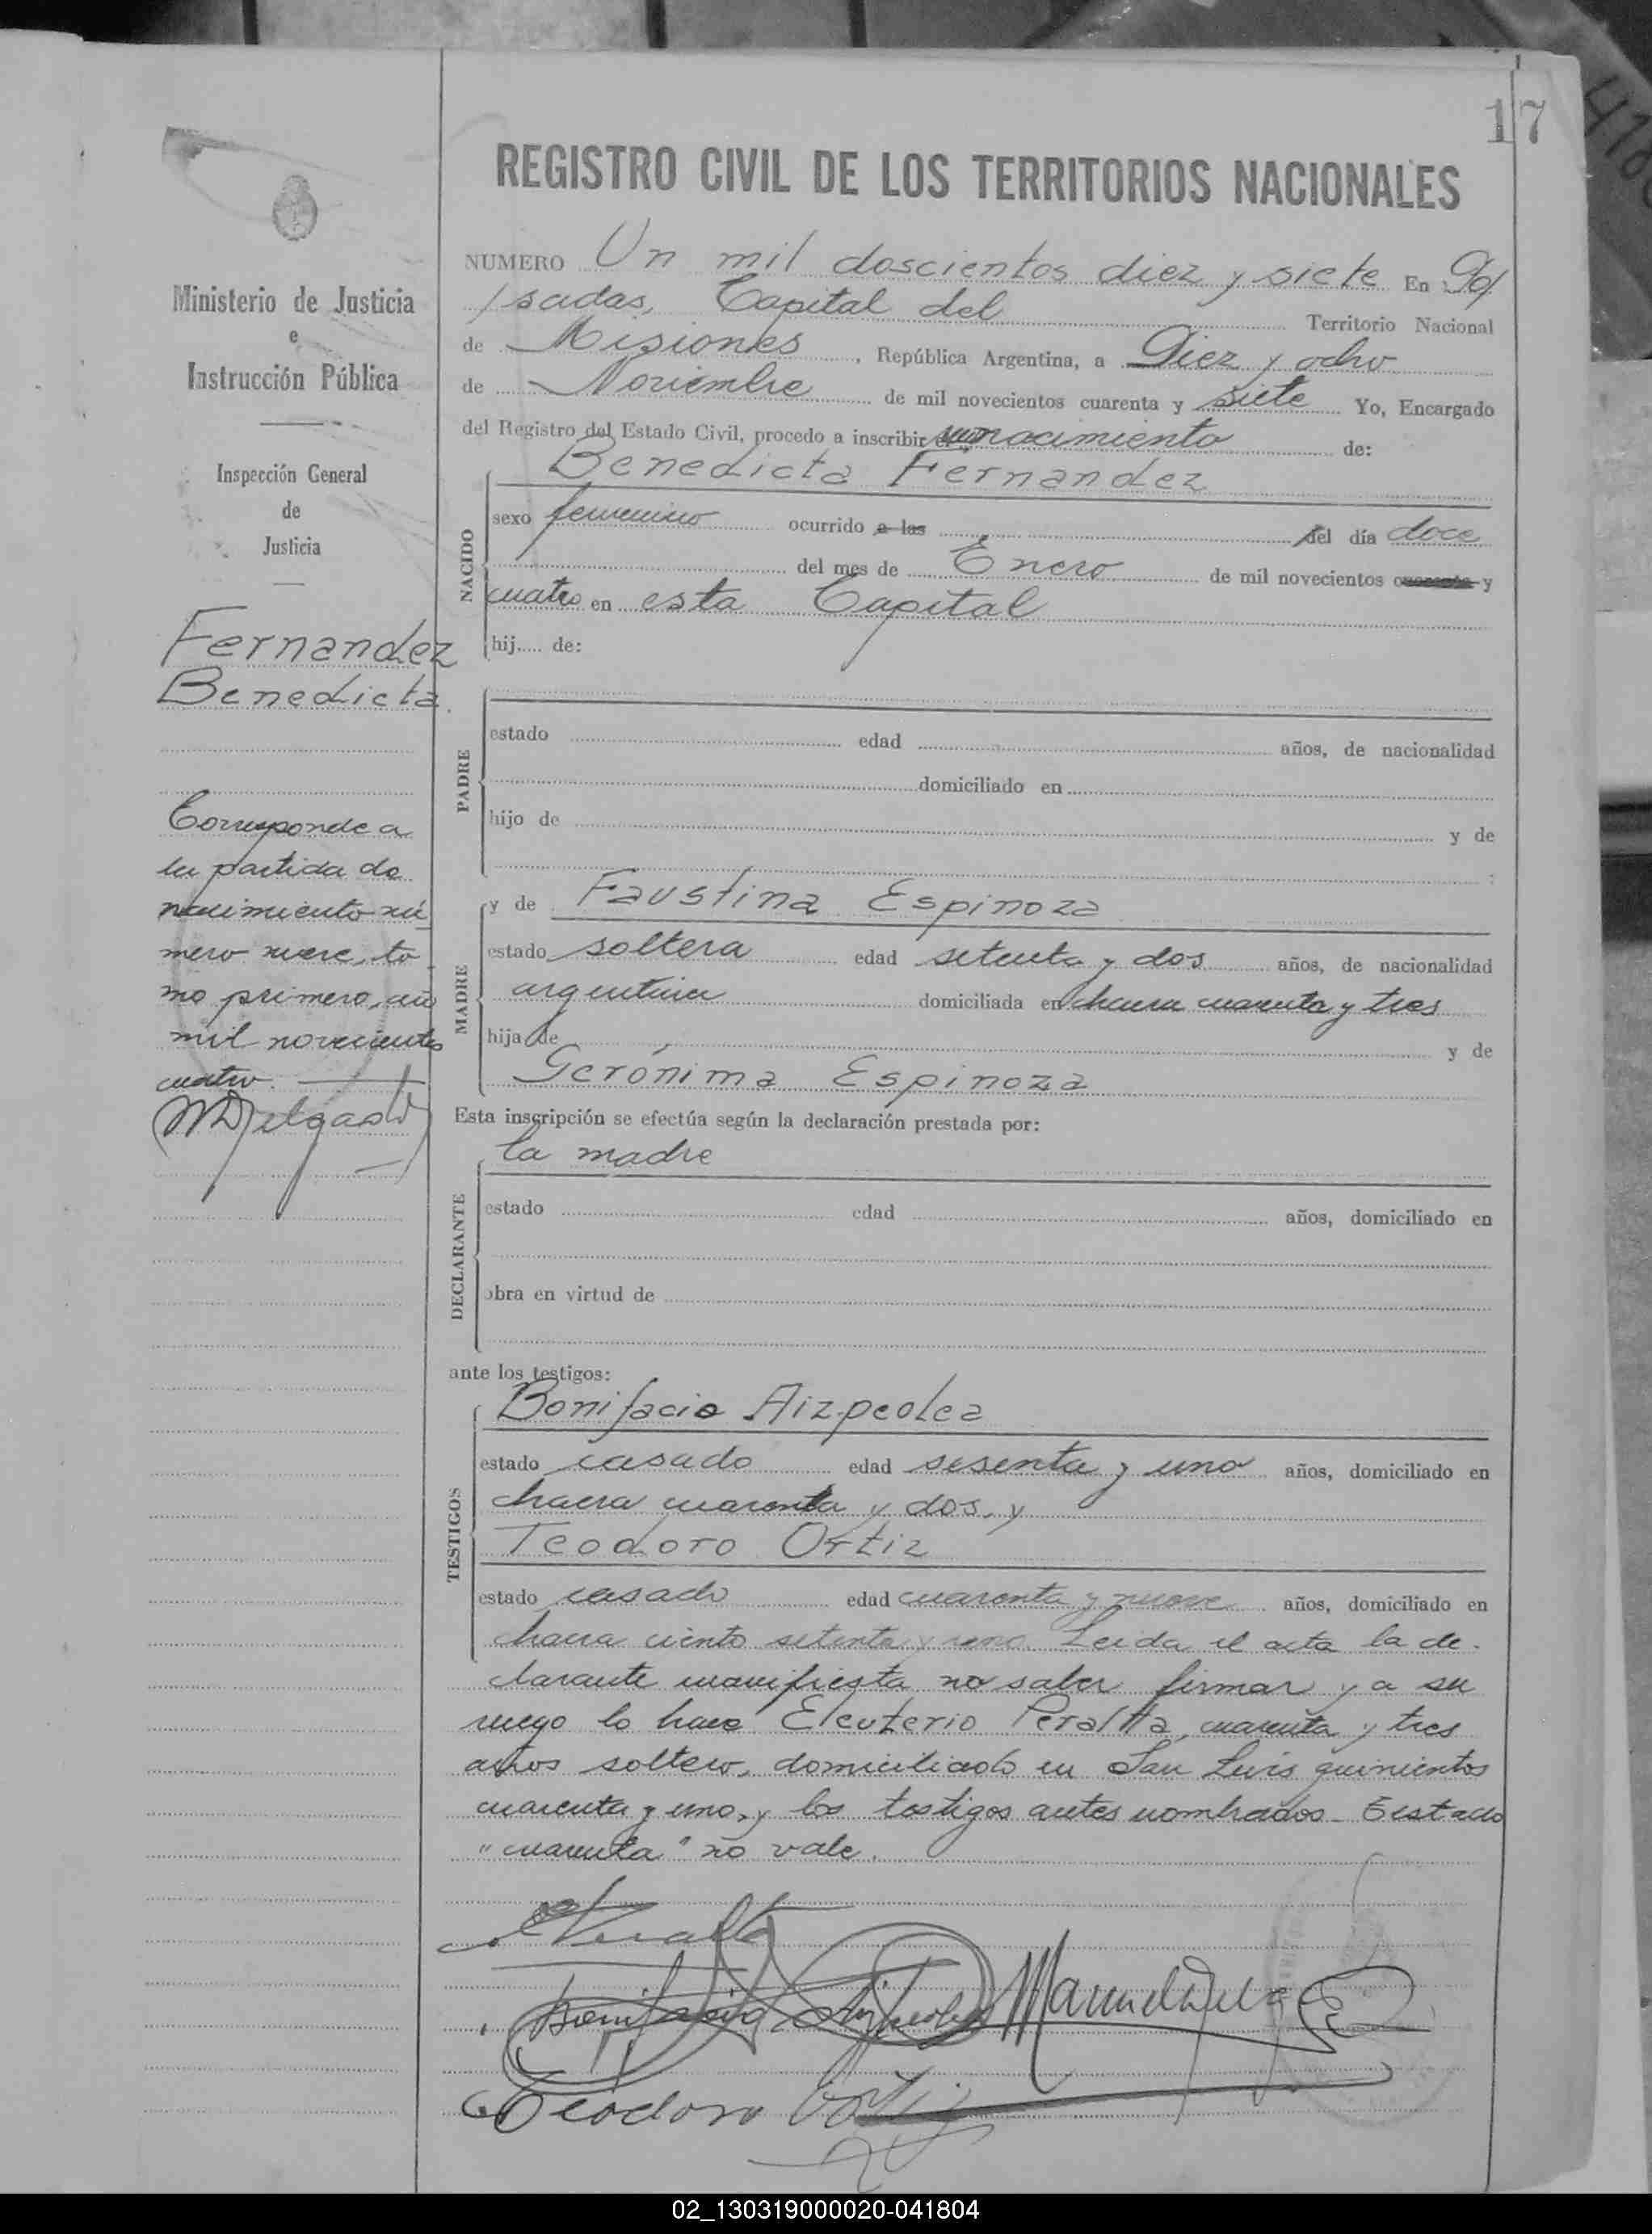 17
REGISTRO CIVIL DE LOS TERRITORIOS NACIONALES
Ministerio de Justicia
e
Instrucción Pública
Inspección General
de
Justicia
Fernandez
Benedicta
Corresponde a
la partida de
nacimiento nú
mero nueve, to
mo primero, año
mil novecientos
cuatro.
MDelgado
NUMERO Un mil doscientos diez y siete En Po/
/sadas, Capital del Territorio Nacional
de Misiones, República Argentina, a Diez y ocho
de Noviembre de mil novecientos cuarenta y siete Yo, Encargado
del Registro del Estado Civil, procedo a inscribir el reconocimiento de:
Benedicta Fernandez
NACIDO
sexo femenino ocurrido a las del día doce
del mes de Enero de mil novecientos cuarenta y
cuatro en esta Capital
hij..... de:
PADRE
estado edad años, de nacionalidad
domiciliado en
hijo de y de
MADRE
y de Faustina Espinoza
estado soltera edad setenta y dos años, de nacionalidad
argentina domiciliada en chacra cuarenta y tres
hija de y de
Gerónima Espinoza
Esta inscripción se efectúa según la declaración prestada por:
la madre
DECLARANTE
estado edad años, domiciliado en
obra en virtud de
ante los testigos:
TESTIGOS
Bonifacio Aizpeolea
estado casado edad sesenta y uno años, domiciliado en
chacra cuarenta y dos, y
Teodoro Ortiz
estado casado edad cuarenta y nueve años, domiciliado en
chacra ciento setenta y uno. Leida el acta la de-
clarante manifiesta no saber firmar y a su
ruego lo hace Eleuterio Peralta, cuarenta y tres
años soltero, domiciliado en San Luis quinientos
cuarenta y uno, y los testigos antes nombrados. Testado
"cuarenta" no vale.
EPeralta
Bonifacio Aizpeolea
Manuel Delgado
Teodoro Ortiz
02_130319000020-041804